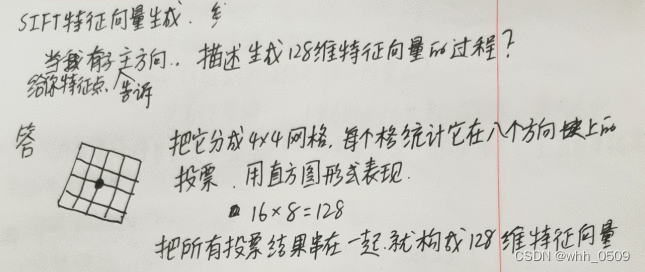 SIFT特征向量生成.
当我有了主方向.. 描述生成128维特征向量的过程?
给你特征点. 告诉
答
把它分成4×4网格,每个格统计它在八个方向块上的
投票.用直方图形式表现.
16×8=128
把所有投票结果串在一起.就构成128维特征向量
CSDN @whh_0509